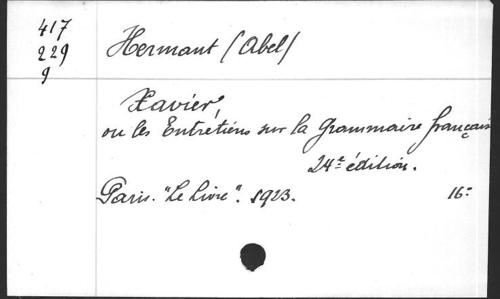 417
229
9
Hermant (Abel)
Xavier,
ou les Entretiens sur la Grammaire français
24e édition.
Paris. "Le Livre". 1923. 16°